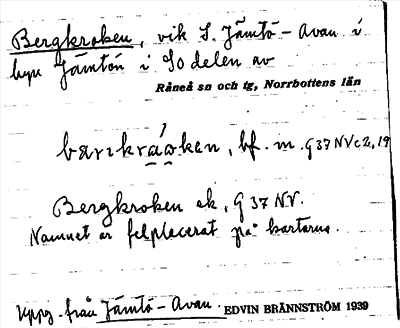 Bergkroken, vik S. Jämtö-Avan i
byn Jämtön i SO delen av
Råneå sn och tg, Norrbottens län
bf. m. G 37 NV c 2, 19
Bergkroken ek. G 37 NV.
Namnet är felplacerat på kartorna.
Uppg. från Jämtö-Avan. EDVIN BRÄNNSTRÖM 1939